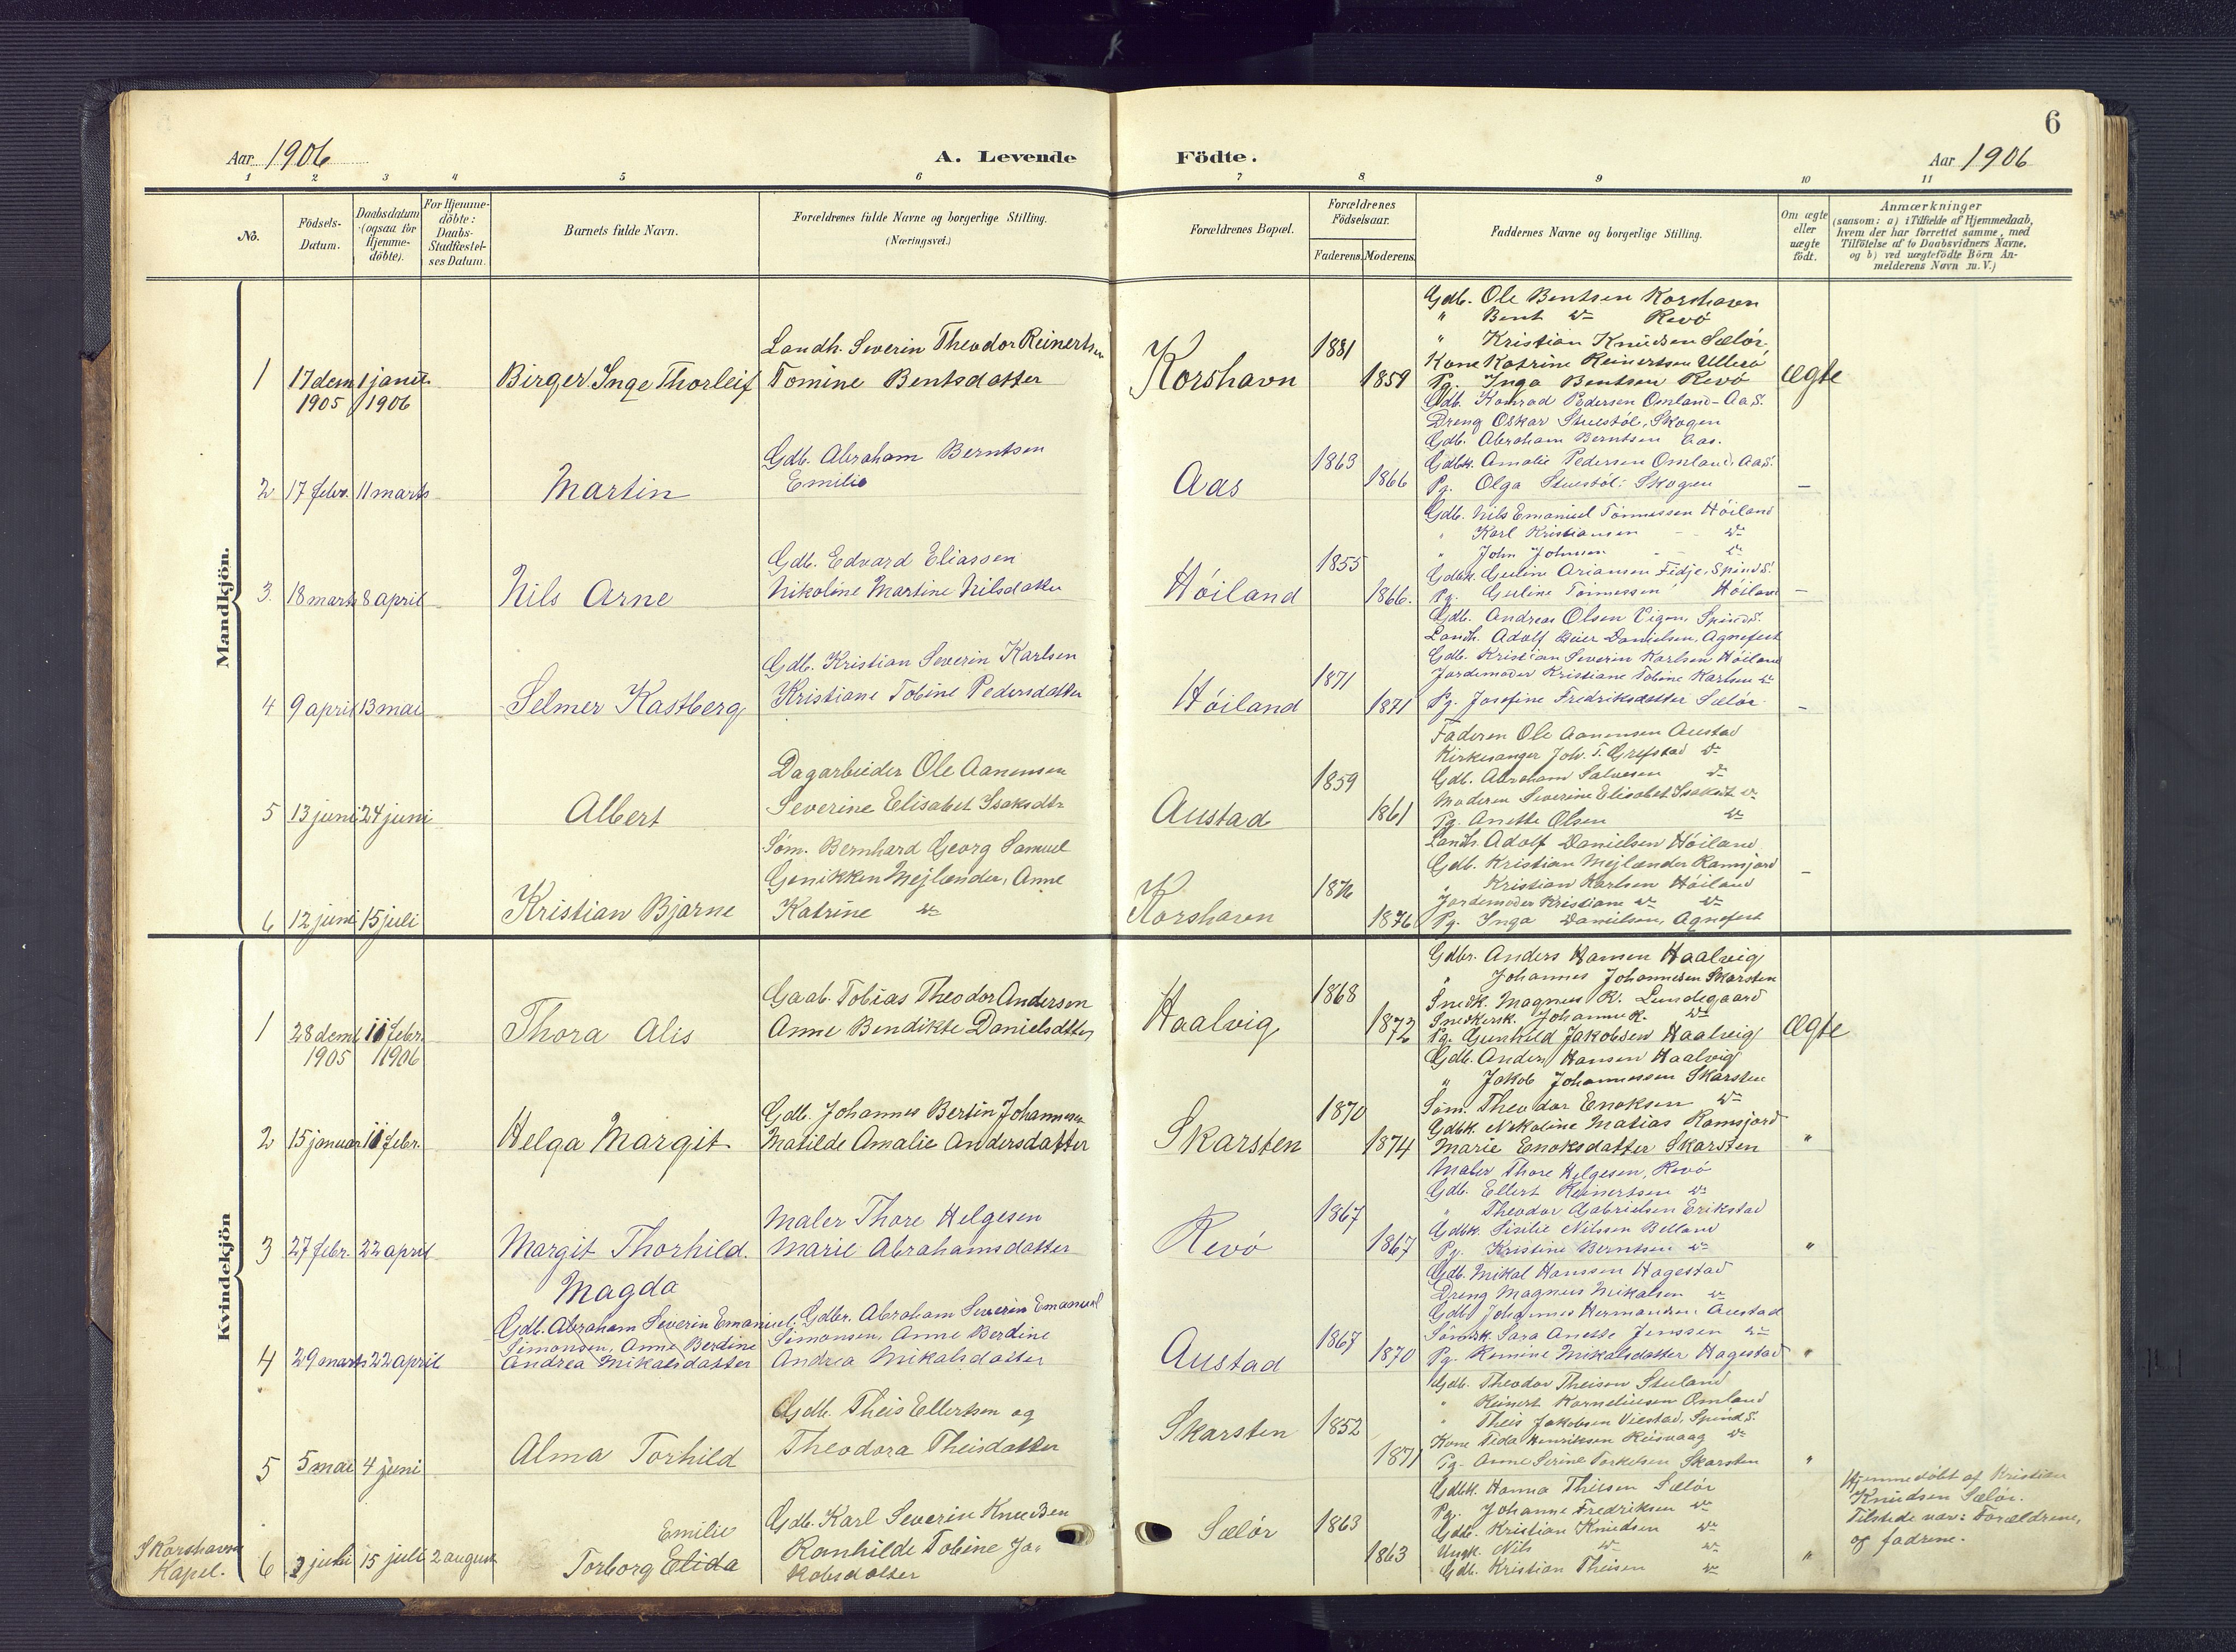 6
Aar 1906
A. Levende
Födte.
Aar 1906
1 2 3 4 5 6 7 8 9 10 11
No.
Födsels-Datum.
Daabsdatum (ogsaa for Hjemme-döbte).
For Hjemme-döbte: Daabs-Stadfæstel-ses Datum.
Barnets fulde Navn.
Forældrenes fulde Navne og borgerlige Stilling.
(Næringsvei.)
Forældrenes Bopæl.
Forældrenes Födselsaar.
Faderens. Moderens.
Faddernes Navne og borgerlige Stilling.
Om ægte eller uægte födt.
Anmærkninger
(saasom: a) i Tilfælde af Hjemmedaab,
hvem der har forrettet samme, med
Tilföielse af to Daabsvidners Navne,
og b) ved uægtefödte Börn An-
melderens Navn m. V.)
Mandkjön.
1 17 dem 1905 1 januar 1906
Birger Inge Thorleif
Landh. Severin Theodor Reinertsen
Tomine Bentsdatter
Korshavn
1881
1859
Gdb. Ole Bentsen Korshavn
" Bent do Revö
" Kristian Knudsen Sælör
Kone Katrine Reinertsen Ullerö
Pg. Inga Bentsen Revö
ægte
2 17 febr. 11 marts
Martin
Gdb. Abraham Berntsen
Emilie
Aas
1863
1866
Gdb. Konrad Pedersen Omland-Aas.
Dreng Oskar Stuestöl, Skogen
Gdb. Abraham Berntsen Aas.
Gdbk. Amalie Pedersen Omland, Aas.
Pg. Olga Stuestöl, Skogen
–
3. 18 marts 8 april
Nils Arne
Gdb. Edvard Eliassen
Nikoline Martine Nilsdatter
Höiland
1855
1866.
Gdb. Nils Emanuel Tönnessen Höiland
" Karl Kristiansen do
" John Johnsen do
Gdbk. Gulin Ariansen Fidje, Spind S.
Pg. Guline Tönnessen Höiland
–
4 9 april 13 mai
Selmer Kastberg
Gdb. Kristian Severin Karlsen
Kristiane Tobine Pedersdatter
Höiland
1871
1871
Gdb. Andreas Olsen Vigen, Spind S.
Landh. Adolf Danielsen, Agnefest
Gdb. Kristian Severin Karlsen Höiland
Jordemoder Kristiane Tobine Karlsen do
Pg. Josefine Fredriksdatter Sælör
–
5 13 juni 24 juni
Albert
Dagarbeider Ole Aanensen
Severine Elisabet Isaksdtr
Austad
1859
1861
Faderen Ole Aanensen Austad
Kirkesanger Joh. T. Grefstad do
Gdb. Abraham Salvesen do
Moderen Severine Elisabet Isaksdt do
Pg. Anette Olsen do
6 12 juni 15 juli
Kristian Bjarne
Söm. Bernhard Georg Samuel
Genikken Mejlænder, Anne
Katrine do
Korshavn
1876
1876
Landh. Adolf Danielsen Höiland
Gdb. Kristian Mejlænder Ramsjord
" Kristian Karlsen Höiland
Jordemoder Kristiane do do
Pg. Inga Danielsen, Agnefest
–
Kvindekjön
1 28 demb 1905 11 febr. 1906
Thora Alis
Gaab. Tobias Theodor Andersen
Anne Bendikte Danielsdtter
Haalvig
1868
1872
Gdbr. Anders Hansen Haalvig
" Johannes Johannesen Skarsten
Snedk. Magnus K. Lundegaard
Snedkersk. Johanne K. do
Pg. Gunhild Jakobsen Haalvig
ægte
2 15 januar 11 febr.
Helga Margit
Gdb. Johannes Bertin Johannesen
Matilde Amalie Andersdatter
Skarsten
1870
1874
Gdb. Anders Hansen Haalvig
" Jakob Johannessen Skarsten
Söm. Theodor Enoksen do
Gdbk. Nikoline Matias Ramsjord
Marie Enoksdatter Skarsten
"
3 27 febr. 22 april
Margit Thorhild.
Maler Thore Helgesen
Marie Abrahamsdatter
Revö
1867
1867
Maler Thore Helgesen, Revö
Gdb. Ellert Reinertsen do
" Theodor Gabrielsen Erikstad
Gdbk. Sisilie Nilssen Belland
Pg. Kristine Berntsen do
"
4 29 marts 22 april
Magda
Gdb. Abraham Severin Emanuel
Simonsen, Anne Berdine
Andrea Mikalsdatter
Gdbr. Abraham Severin Emanuel
Simonsen, Anne Berdine
Andrea Mikalsdatter
Austad
1867
1870
Gdb. Mikal Hanssen Hagestad
Dreng Magnus Mikalsen do
Gdb. Johannes Hermansen Austad
Sömdsk. Sara Anette Jenssen do
Pg. Romine Mikalsdatter Hagestad
"
5 5 mai 4 juni
Alma Torhild
Gdb. Theis Ellertsen og
Theodora Theisdatter
Skarsten
1852
1871
Gdb. Theodor Theisen Stuland
" Reinert Korneliusen Omland
" Theis Jakobsen Viestad, Spind S.
Kone Teda Henriksen Risvaag do
Pg. Anne Serine Torkelsen Skarsten
"
Korshavn Kapel.
6 2 juli 15 juli 2 august
Emilie
Torborg Elida
Gdb. Karl Severin Knudsen
Ranhilde Tobine Ja-
kobsdatter
Sælör
1863
1863
Gdbk. Hanna Theisen Sælör
Pg. Johanne Fredriksen do
Gdb. Kristian Knudsen do
Ungk. Nils do do
Gdb. Kristian Theisen do
"
Hjemmedöbt af Kristian
Knudsen Sælör.
Tilstede var: Forældrene,
og fadrene.